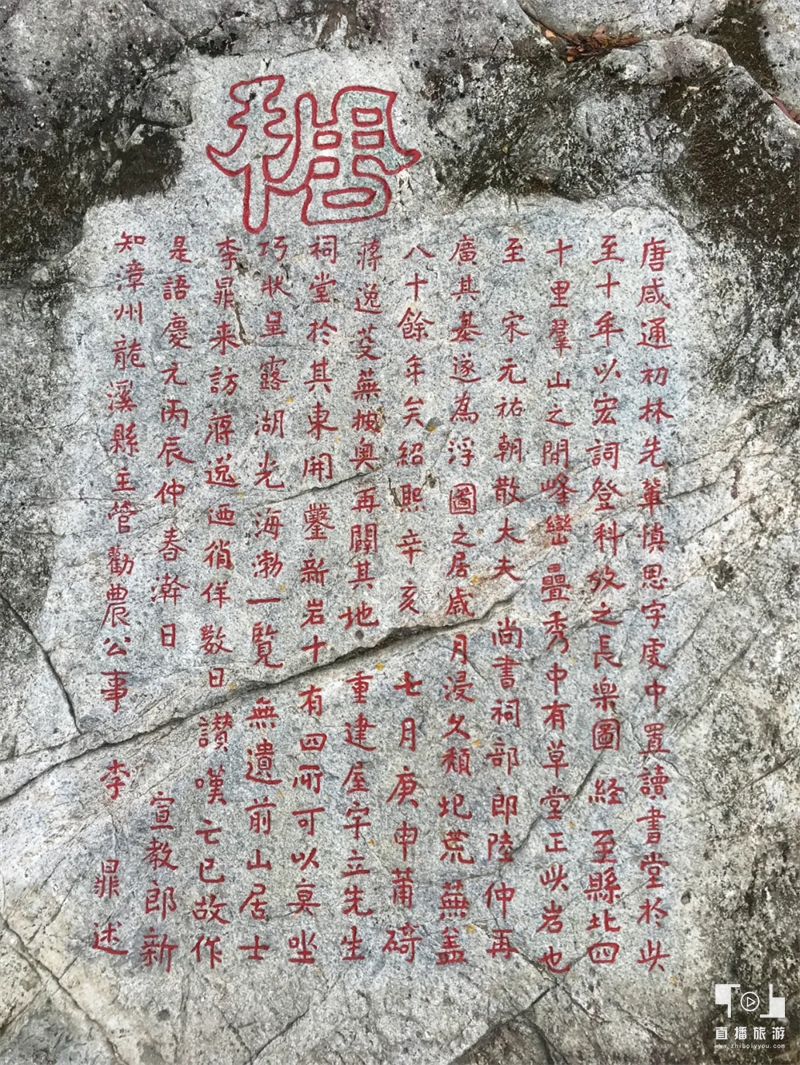 唐咸通初林先輩慎思字虔中置讀書堂於此
至十年以宏詞登科攷之長樂圖經至縣北四
十里羣山之間峰巒疊秀中有草堂正此岩也
至 宋元祐朝散大夫 尚書祠部郎陸仲再
廣其基遂為浮圖之居歲月浸久頹圮荒蕪盖
八十餘年矣紹熙辛亥 七月庚申莆碕
蔣逸芟蕪披奥再闢其地 重建屋宇立先生
祠堂於其東開鑿新岩十有四所可以奠坐
巧狀呈露湖光海渤一覽無遺前山居士
李暃来訪蔣逸迺徜佯數日讃嘆亡已故作
是語慶元丙辰仲春澣日 宣教郎新
知漳州龍溪縣主管勸農公事 李 暃 述
直播旅游